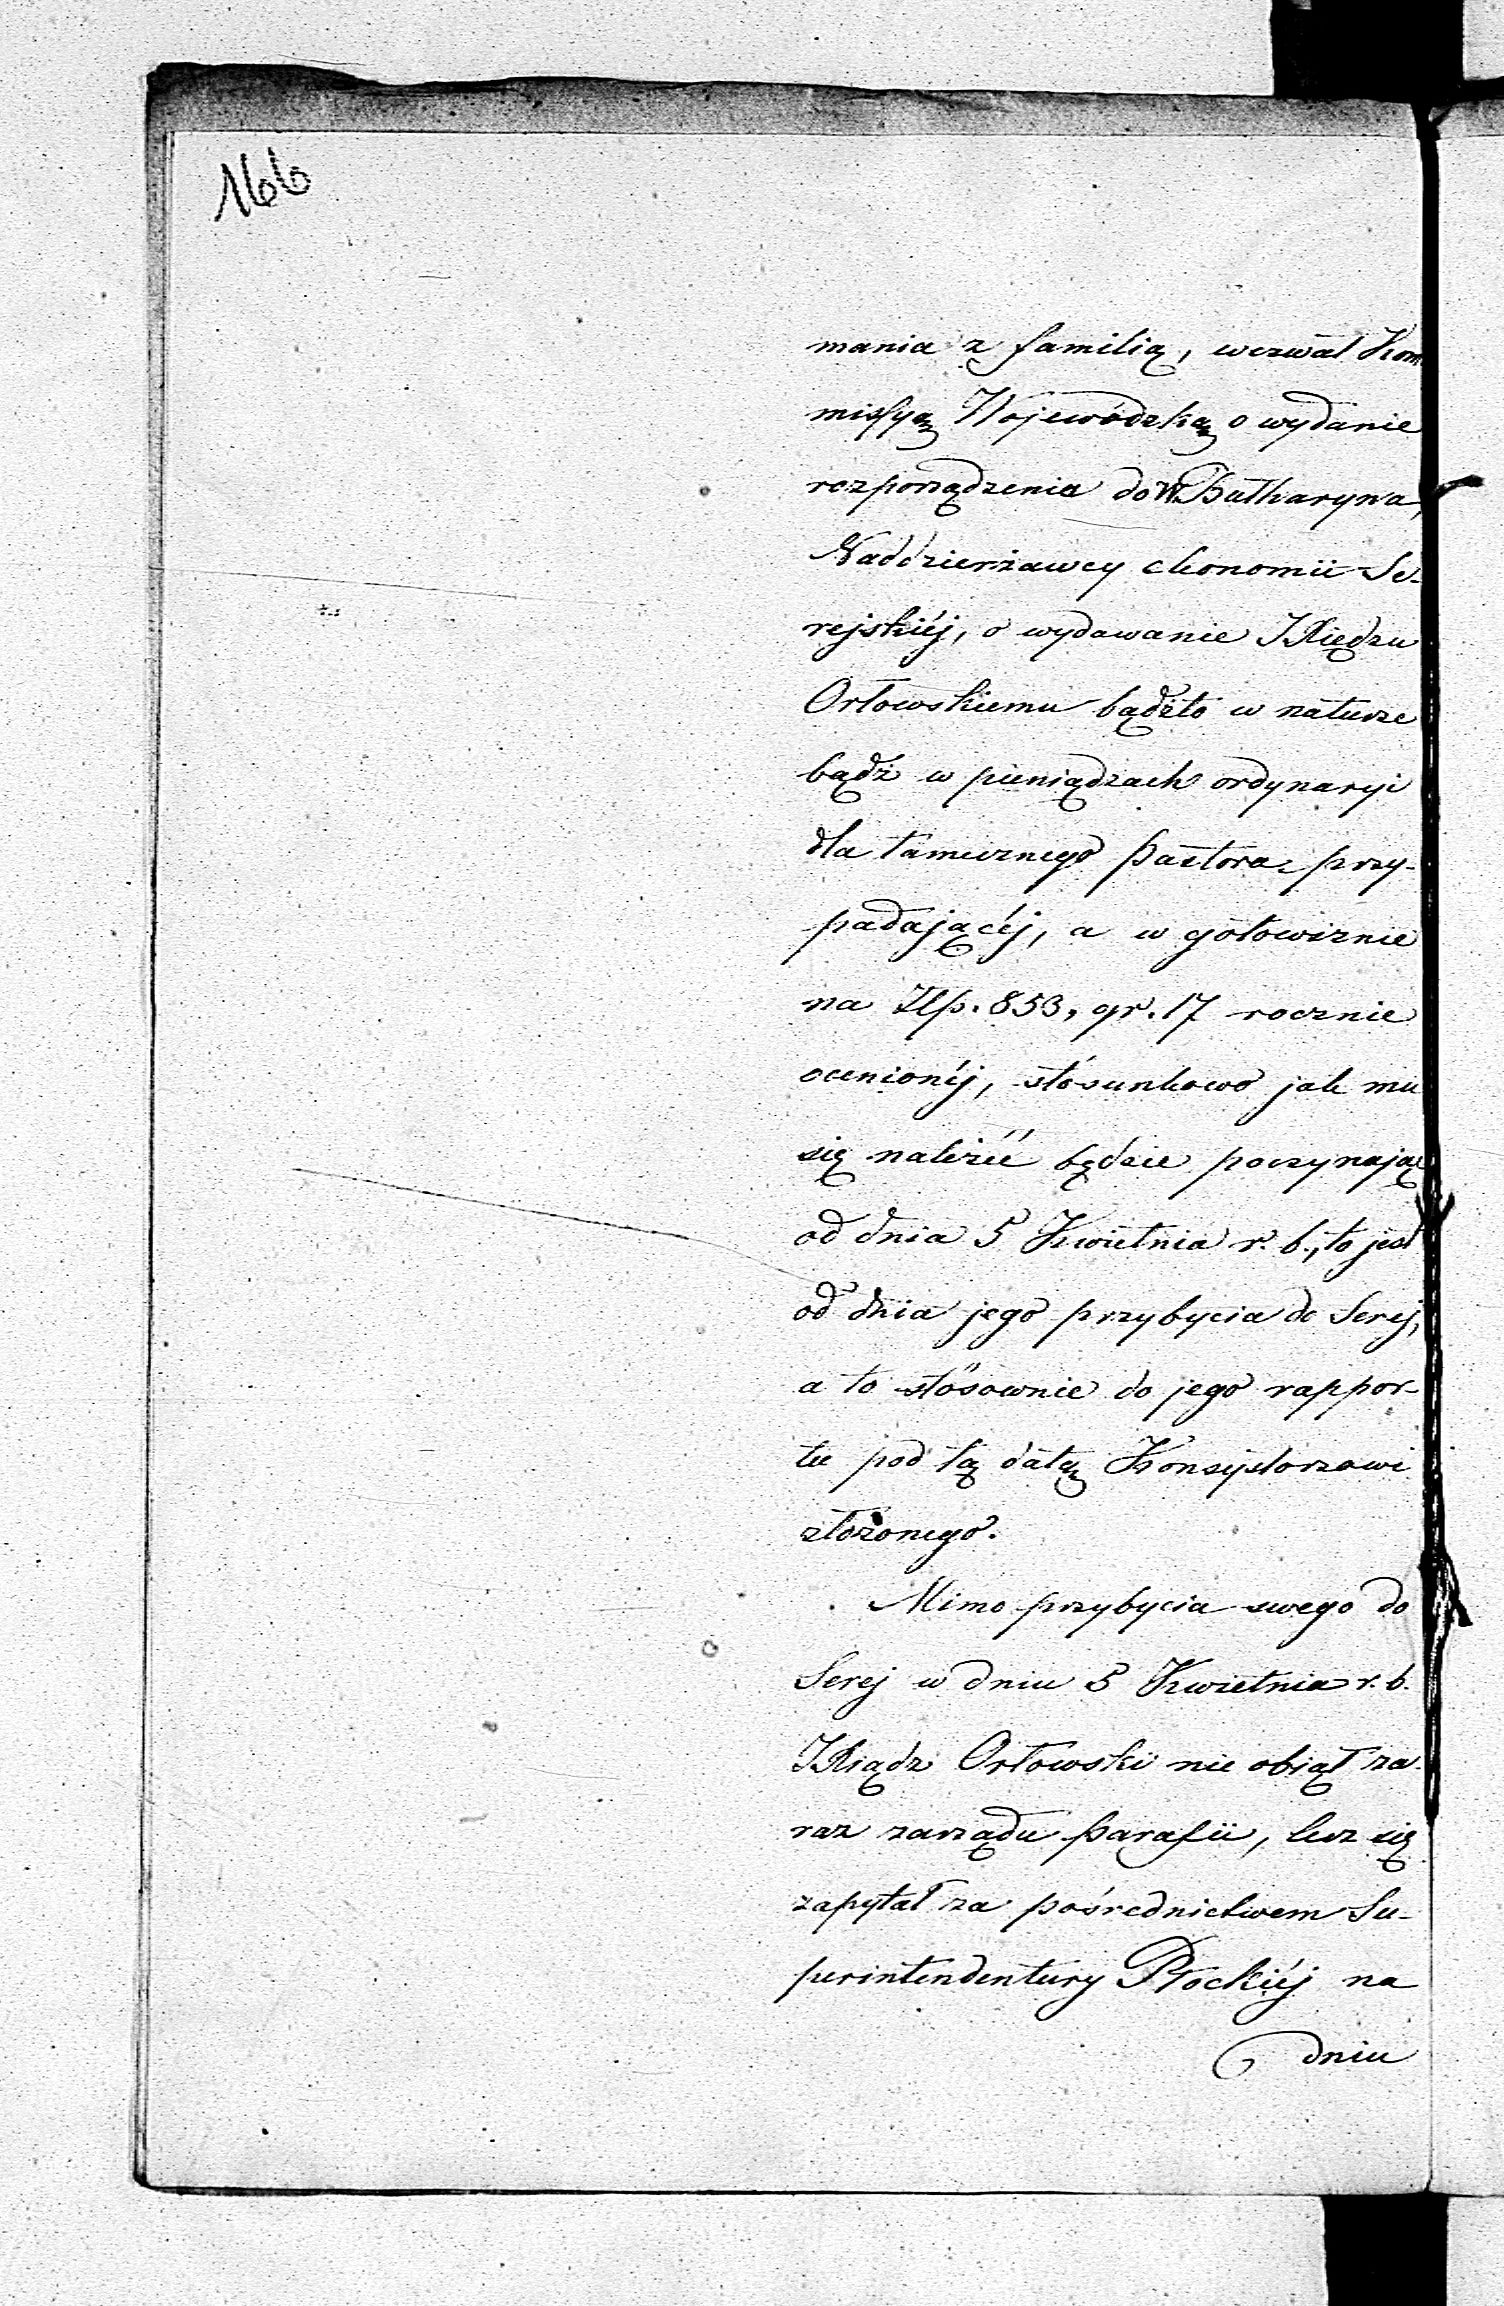 166
mania z familią, wezwał Kom
missyą Wojewódzką o wydanie
rozporządzenia do W. Batharyna,
Naddzierżawcy ekonomii Se-
rejskiéj, o wydawanie JXiędzu
Orłowskiemu bądźto w naturze
bądź w pieniądzach ordynaryi
dla tamecznego Pastora przy-
padającéj, a w gotowiznie
na Złp. 853, gr. 17 rocznie
ocenionéj, stósunkowo jak mu
się należéć będzie poczynając
od dnia 5 Kwietnia r. b., to jest
od dnia jego przybycia do Serej,
a to stósownie do jego rappor-
tu pod tą datą Konsystorzowi
złożonego.
Mimo przybycia swego do
Serej w dniu 5 Kwietnia r. b.
JXiądz Orłowski nie obiął za-
raz zarządu Parafii, lecz się
zapytał za pośrednictwem Su-
perintendentury Płockiéj na
dniu